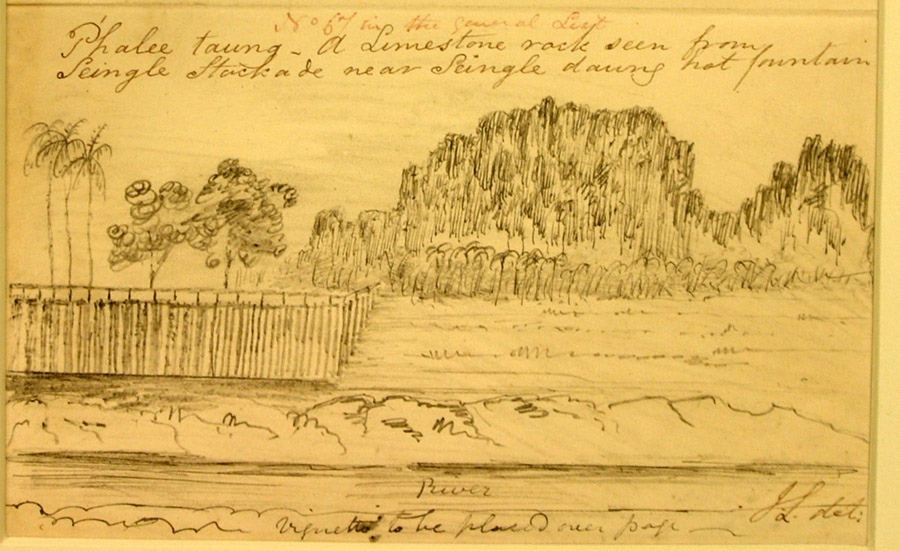 No 67 in the general List
Phalee taung - A Limestone rock seen from
Seingle Stockade near Seingle daung hot fountain
River
Vignette to be placed over page
J L. del: